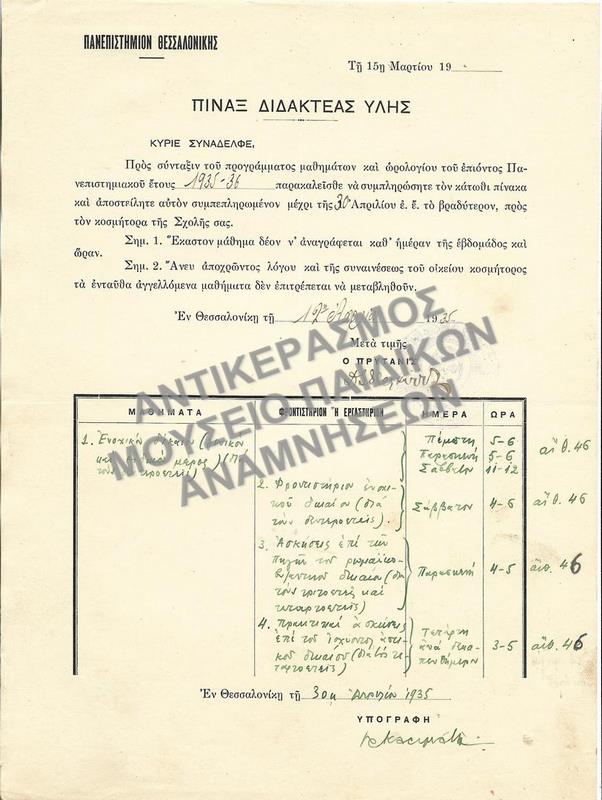 ΠΑΝΕΠΙΣΤΗΜΙΟΝ ΘΕΣΣΑΛΟΝΙΚΗΣ
Τῇ 15ῃ Μαρτίου 19
ΠΙΝΑΞ ΔΙΔΑΚΤΕΑΣ ΥΛΗΣ
ΚΥΡΙΕ ΣΥΝΑΔΕΛΦΕ,
Πρὸς σύνταξιν τοῦ προγράμματος μαθημάτων καὶ ὡρολογίου τοῦ ἐπιόντος Πα-
νεπιστημιακοῦ ἔτους 1935-36 παρακαλεῖσθε νὰ συμπληρώσητε τὸν κάτωθι πίνακα
καὶ ἀποστείλητε αὐτὸν συμπεπληρωμένον μέχρι τῆς 30 Ἀπριλίου ἐ. ἔ. τὸ βραδύτερον, πρὸς
τὸν κοσμήτορα τῆς Σχολῆς σας.
Σημ. 1. Ἕκαστον μάθημα δέον ν' ἀναγράφεται καθ' ἡμέραν τῆς ἑβδομάδος καὶ
ὥραν.
Σημ. 2. Ἄνευ ἀποχρῶντος λόγου καὶ τῆς συναινέσεως τοῦ οἰκείου κοσμήτορος
τὰ ἐνταῦθα ἀγγελλόμενα μαθήματα δὲν ἐπιτρέπεται νὰ μεταβληθοῦν.
Ἐν Θεσσαλονίκῃ τῇ 12ῃ 1935
Μετὰ τιμῆς
Ο ΠΡΥΤΑΝΙΣ
ΑΝΤΙΚΕΡΑΣΜΟΣ
ΜΟΥΣΕΙΟ ΠΑΙΔΙΚΩΝ
ΑΝΑΜΝΗΣΕΩΝ
ΜΑΘΗΜΑΤΑ ΦΡΟΝΤΙΣΤΗΡΙΟΝ Ἢ ΕΡΓΑΣΤΗΡΙΟΝ ΗΜΕΡΑ ΩΡΑ
1. Ἐνοχικὸν δίκαιον Πέμπτη 5-6
Παρασκευὴ 5-6 αἴθ. 46
μέρος) Σάββατον 11-12
2. Φροντιστήριον ἐνοχι-
κοῦ δικαίου (διὰ Σάββατον 4-6 αἴθ. 46
τοὺς δευτεροετεῖς).
3. Ἀσκήσεις ἐπὶ τῶν
πηγῶν τοῦ ρωμαϊκο-
βυζαντινοῦ δικαίου (διὰ Παρασκευὴ 4-5 αἴθ. 46
τοὺς τριτοετεῖς καὶ
τεταρτοετεῖς)
4. Πρακτικαὶ ἀσκήσεις
ἐπὶ τοῦ ἰσχύοντος ἀστι- Τετάρτη 3-5 αἴθ. 46
κοῦ δικαίου (διὰ τοὺς τε- ἀνὰ δεκα-
ταρτοετεῖς) πενθήμερον
Ἐν Θεσσαλονίκῃ τῇ 30ῃ Ἀπριλίου 1935
ΥΠΟΓΡΑΦΗ